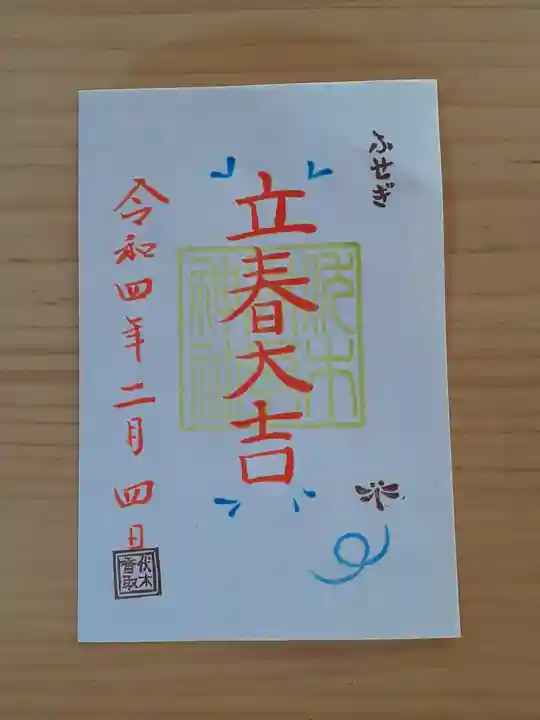 ふせぎ
立春大吉
令和四年二月四日
伏木
香取